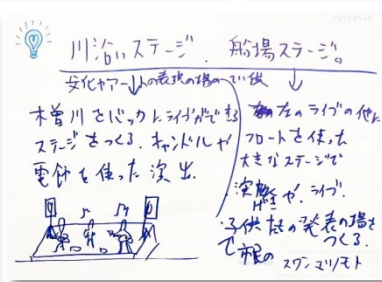 川沿いステージ. 船場ステージ。
文化やアートの表現の場
木曽川をバックにライブができる
ステージをつくる. キャンドルや
電飾を使った演出.
左のライブの他に
フロートを使った
大きなステージで
演劇や. ライブ.
子供たちの発表の場を
つくる.
で市民の
スワンマリノモト